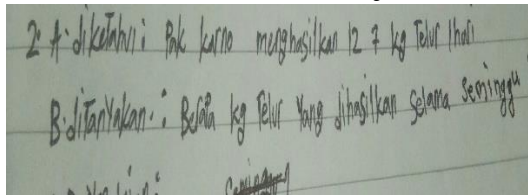 2. A. diketahui : Pak karno menghasilkan 12 7 kg Telur 1 hari
B. diTanyakan : Berapa kg Telur Yang dihasilkan selama seminggu